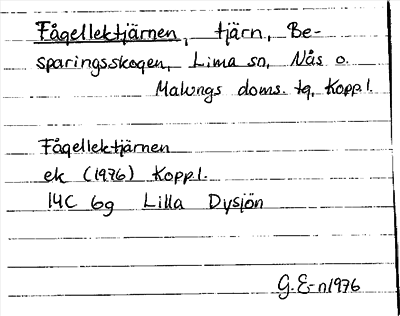 Fågellektjärnen, tjärn, Be-
sparingsskogen, Lima sn, Nås o.
Malungs doms. tg, Kopp.l.
Fågellektjärnen
ek (1976) Kopp.l.
14C 6g Lilla Dysjön
G. E-n 1976